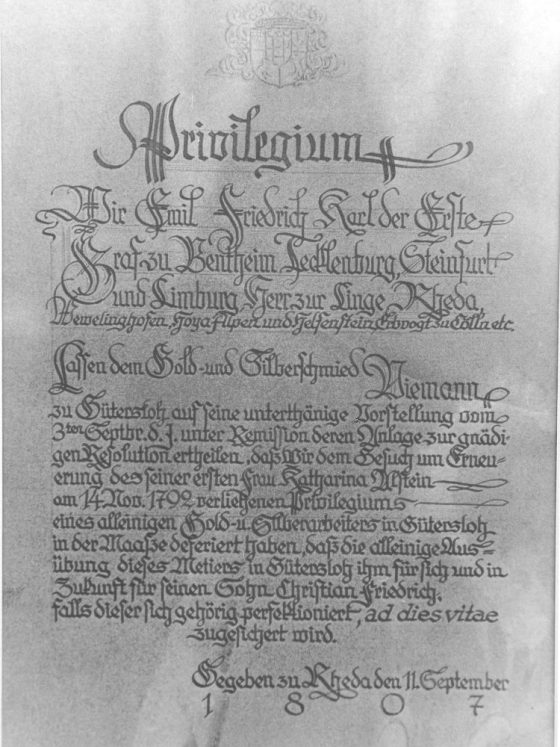 Privilegium
Wir Emil Friedrich Karl der Erste
Graf zu Bentheim Tecklenburg, Steinfurt
und Limburg Herr zur Linge, Rheda,
Wewelinghofen, Hoya, Alpen und Helfenstein, Erbvogt zu Cölln etc.
Lassen dem Gold- und Silberschmied Niemann
zu Gütersloh auf seine unterthänige Vorstellung vom
3ten Septbr. d. J. unter Remission deren Anlage zur gnädi-
gen Resolution ertheilen, daß wir dem Gesuch um Erneu-
erung des seiner ersten Frau Katharina Alstein
am 14. Nov. 1792 verliehenen Privilegiums
eines alleinigen Gold- u. Silberarbeiters in Gütersloh
in der Maaße deferiert haben, daß die alleinige Aus-
übung dieses Metiers in Gütersloh ihm für sich und in
Zukunft für seinen Sohn Christian Friedrich,
falls dieser sich gehörig perfektioniert, ad dies vitae
zugesichert wird.
Gegeben zu Rheda den 11. September
1 8 0 7